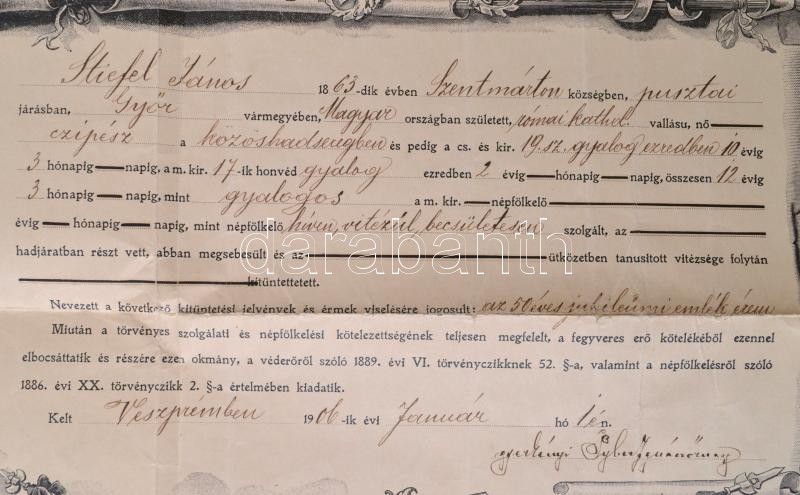 Stiefel János 1863-dik évben Szentmárton községben, pusztai
járásban, Győr vármegyében, Magyar országban született, római kath. vallásu, nő
czipész a közöshadseregben és pedig a cs. és kir. 19. sz. gyalog ezredben 10 évig
3 hónapig napig, a m. kir. 17-ik honvéd gyalog ezredben 2 évig hónapig napig, összesen 12 évig
3 hónapig napig, mint gyalogos a m. kir. népfölkelő
évig hónapig napig, mint népfölkelő híven, vitézül, becsületesen szolgált, az
hadjáratban részt vett, abban megsebesült és az ütközetben tanusitott vitézsége folytán
kitüntettetett.
Nevezett a következő kitüntetési jelvények és érmek viselésére jogosult: az 50 éves jubileumi emlék érem
Miután a törvényes szolgálati és népfölkelési kötelezettségének teljesen megfelelt, a fegyveres erő kötelékéből ezennel
elbocsáttatik és részére ezen okmány, a véderőről szóló 1889. évi VI. törvényczikknek 52. §-a, valamint a népfölkelésről szóló
1886. évi XX. törvényczikk 2. §-a értelmében kiadatik.
Kelt Veszprémben 1906-ik évi Január hó 1én.
darabanth